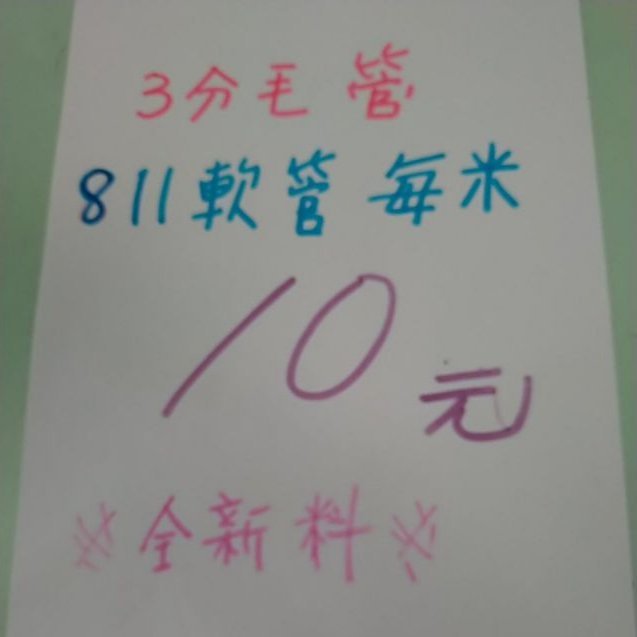 3分毛管
811軟管每米
10元
※全新料※